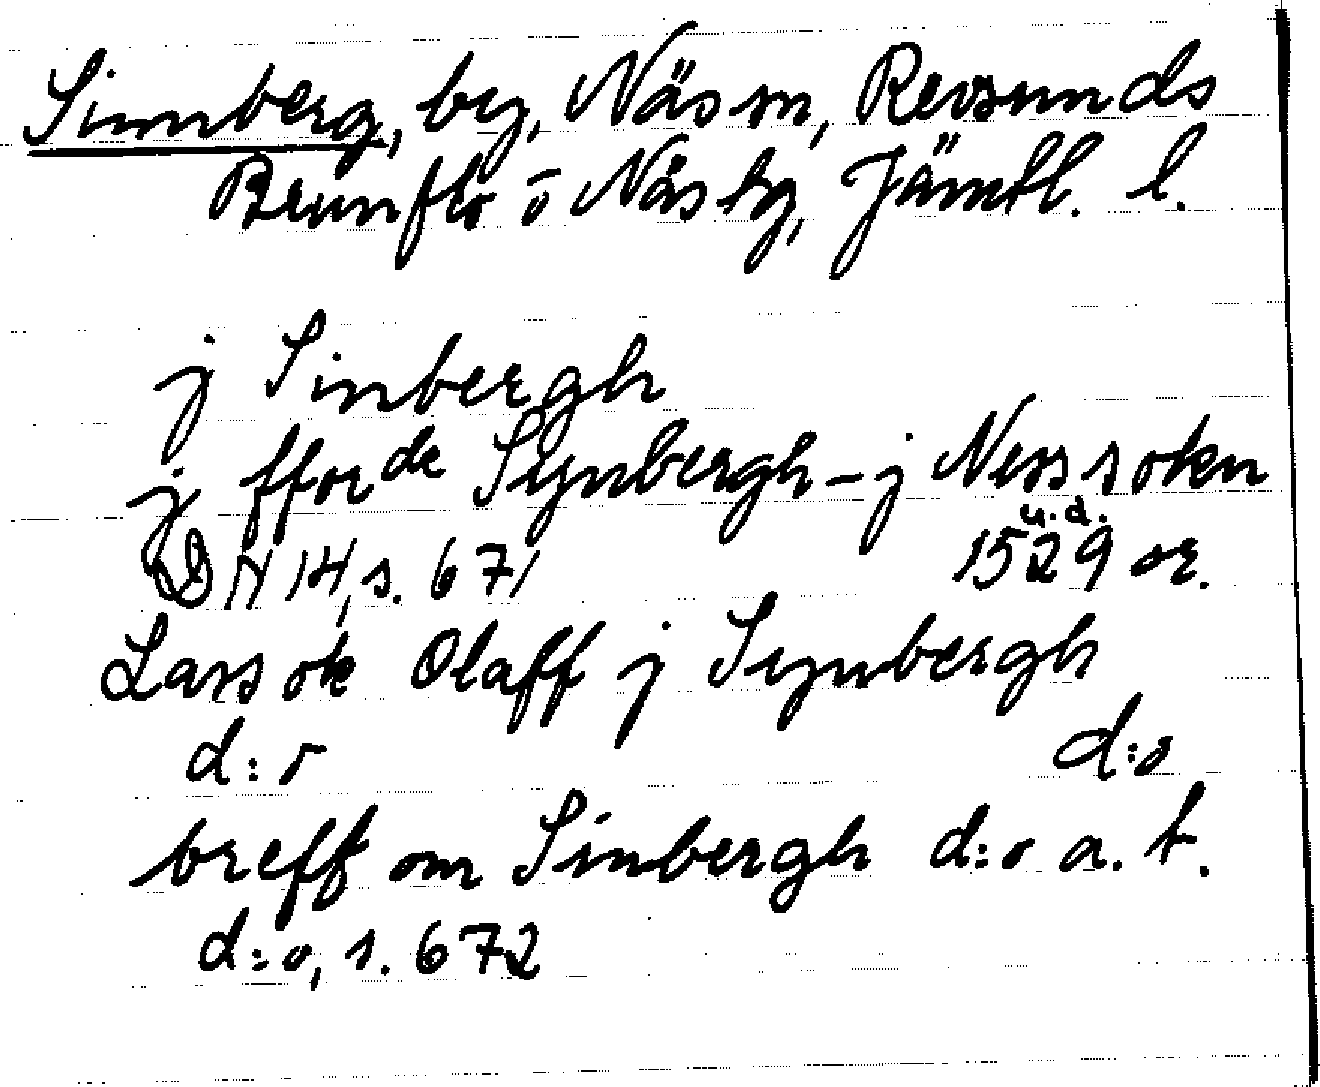 Sinnberg, by, Näs sn, Revsunds
Brunflo o Näs tg, Jämtl. l.
j Sinbergh
j fforde Synbergh - j Ness sokn
u.d.
DN 14, s. 671 1529 or.
Lass ok Olaff j Synbergh
d:o d:o
breff om Sinbergh d:o a.t.
d:o, s. 672